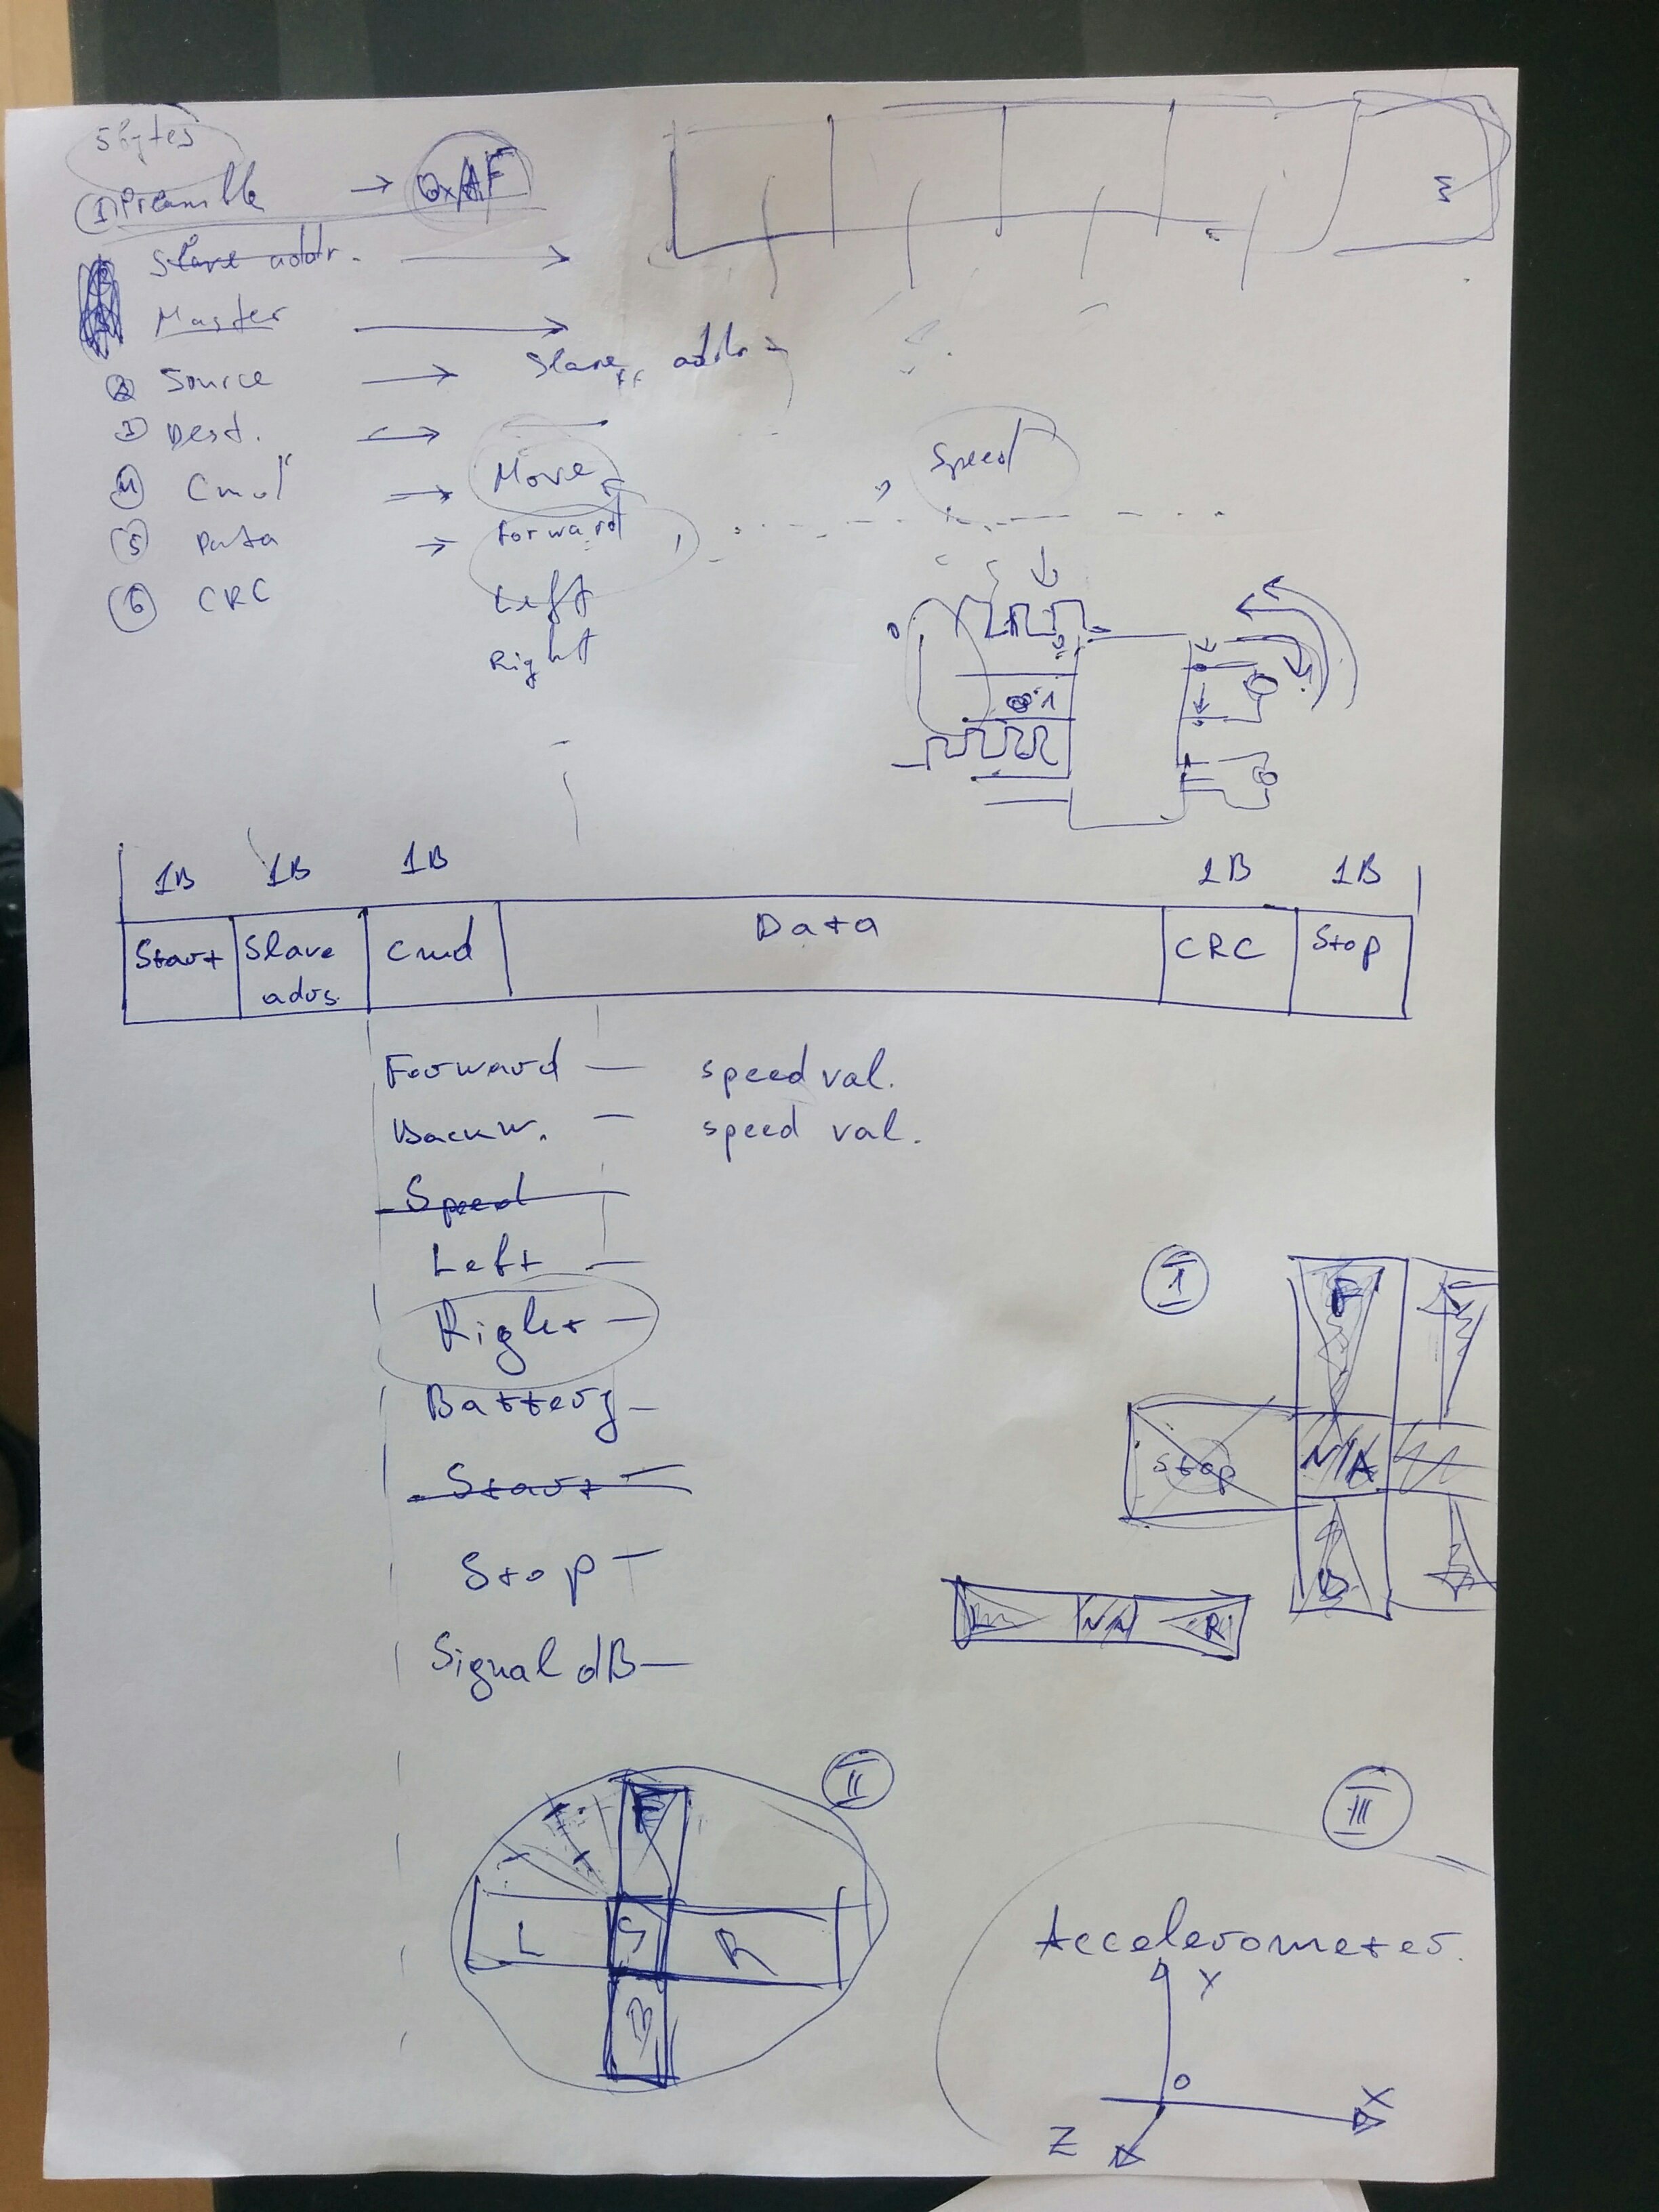 5bytes
① Preamble → 0xAF
Slave addr. →
Master →
② Source → Slave addr
③ Dest. →
④ Cmd → Move
Speed
⑤ Data → Forward
⑥ CRC
Left
Right
1
1B 1B 1B 1B 1B
Start Slave adrs. Cmd Data CRC Stop
Forward — speed val.
Backw. — speed val.
Speed
Left —
Right —
Battery —
Start —
Stop —
Signal dB —
I
F
Stop N/A
B
L N/A R
II
F
L S R
B
III
Accelerometer.
Y
O
X
Z